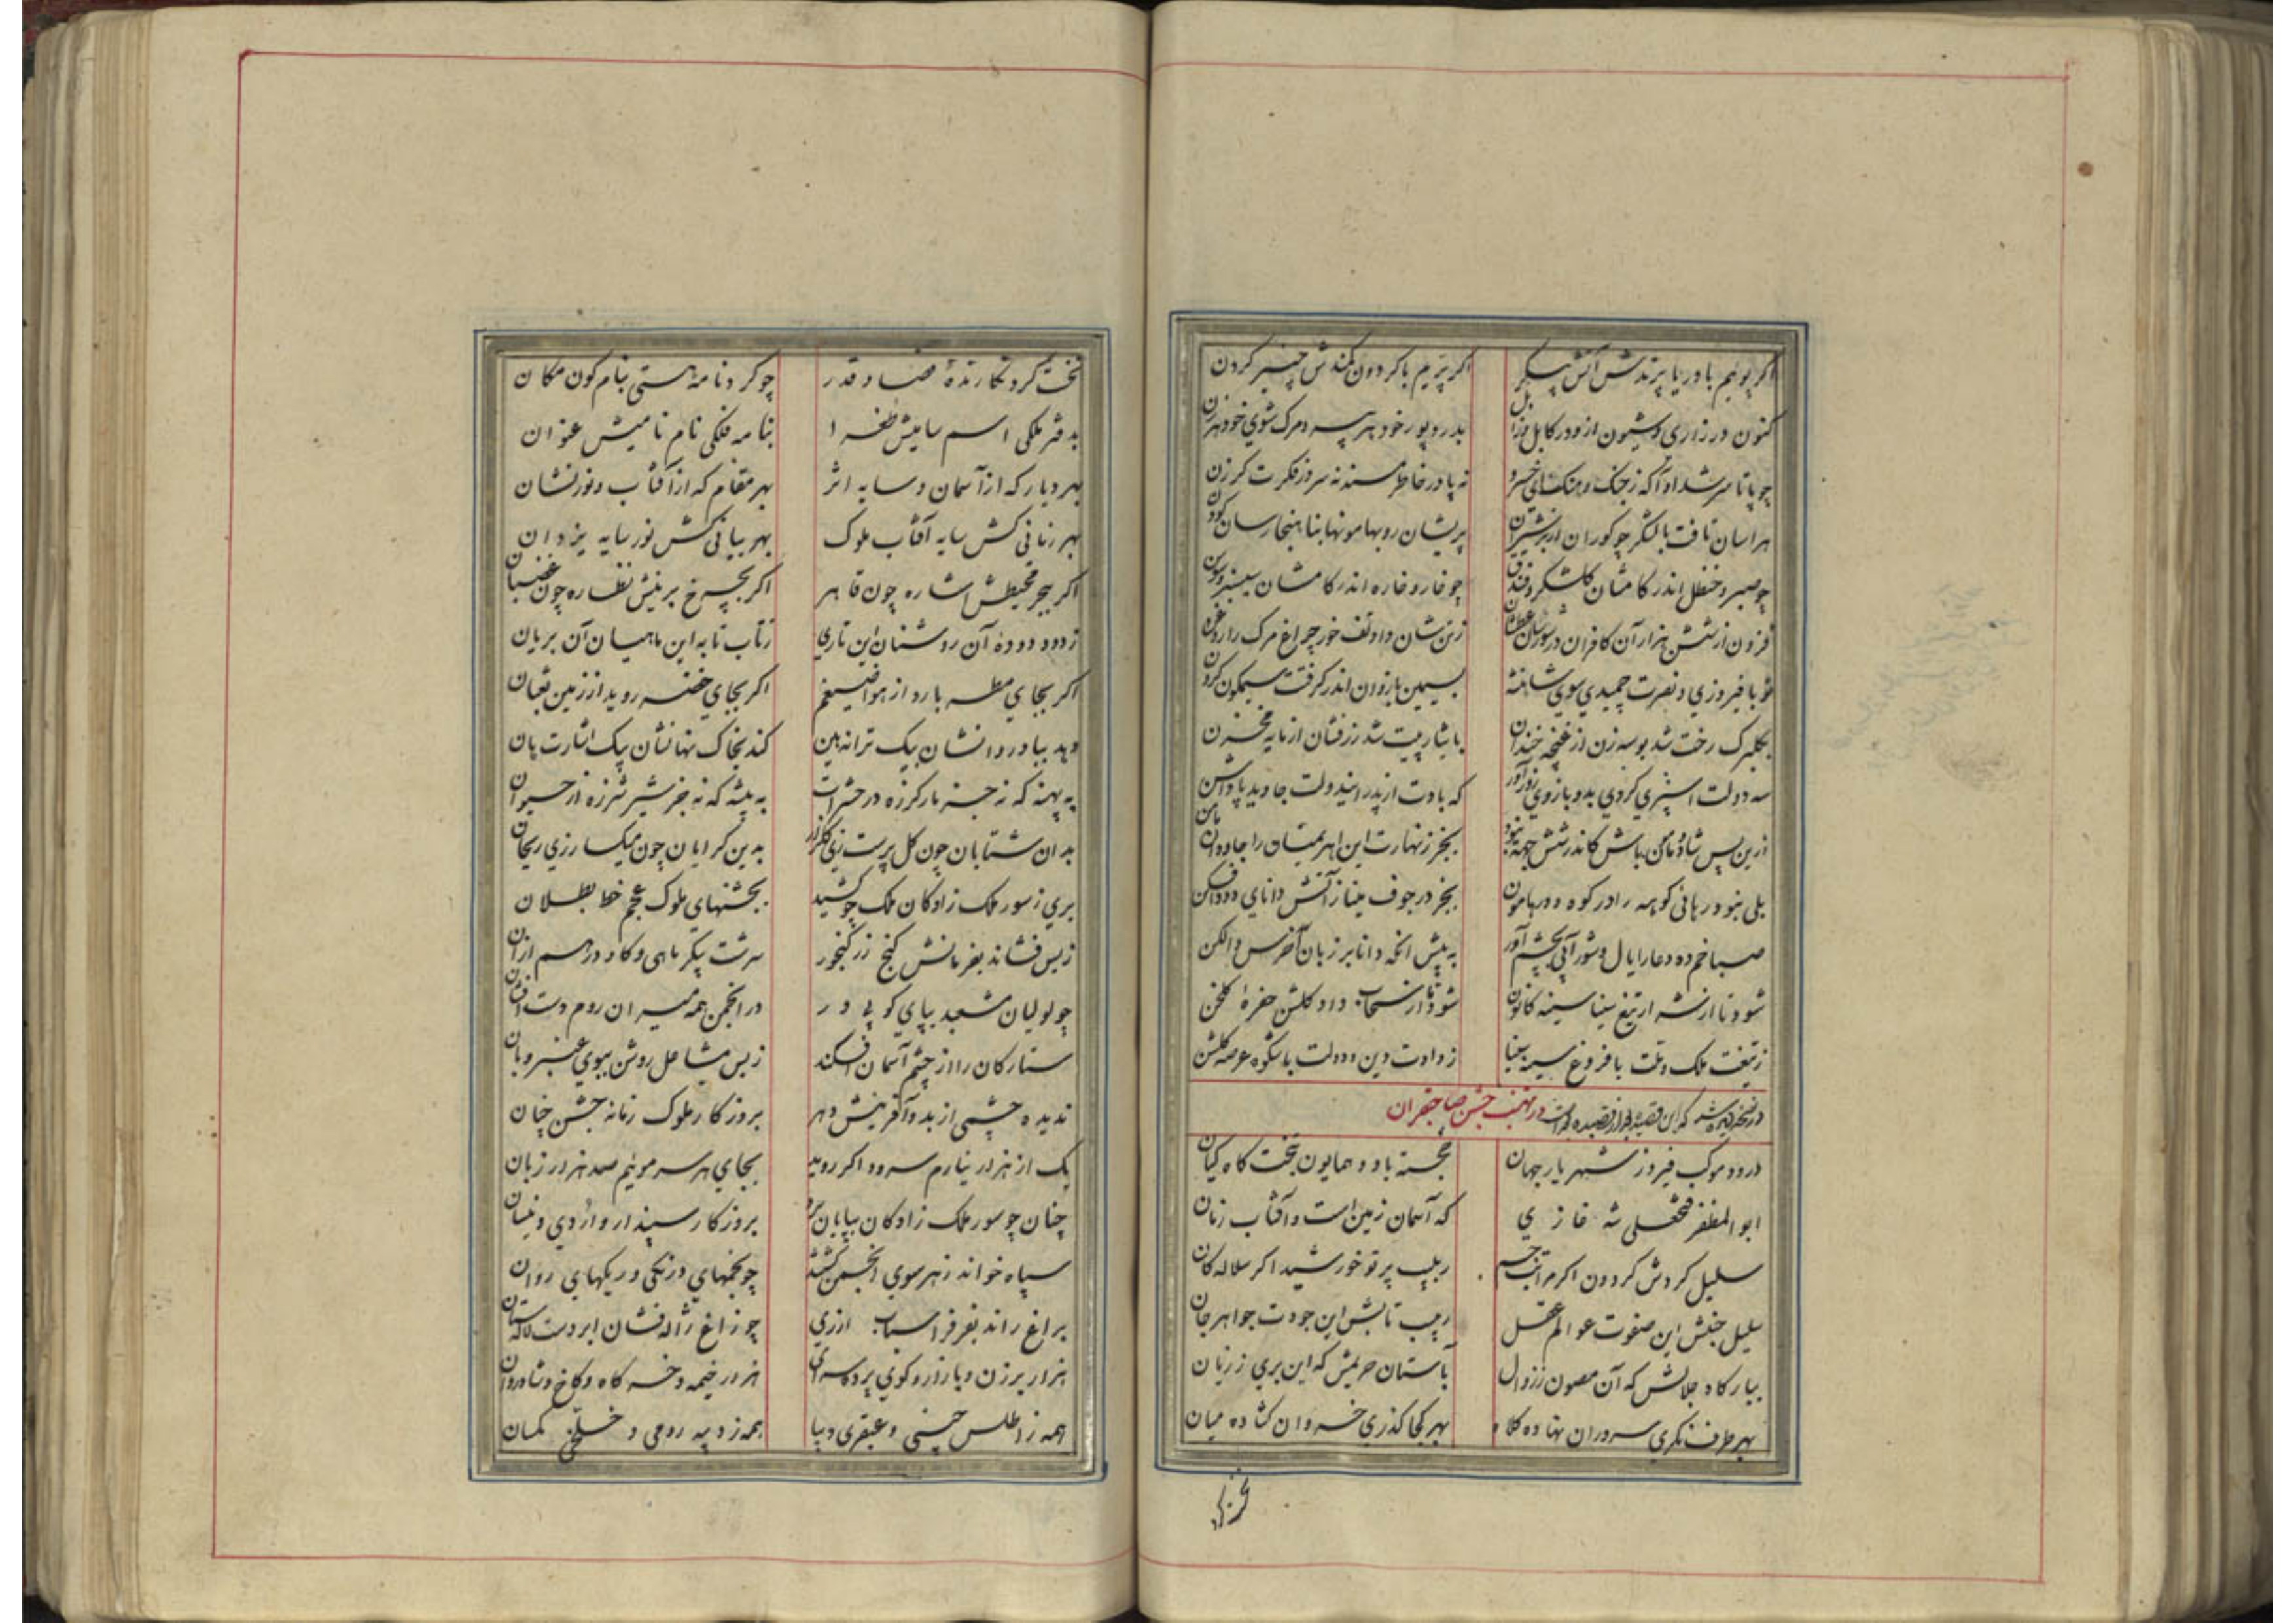 اگر پویم با دریا پرندش آتش پیکر اگر پریم با گردون کمندش چنبر گردون
کنون در زاری و شیون از و در کابل
چو پا تا سر شد او آگه ز جنگ و هنگ‌های خسرو نه پا در خاطر مسند نه سر در فکرت گرزن
هراسان تافت با لشکر چو کوران از پریشان روبها مونها بنا هنجار سان
چو صبر و حنظل اندر کامشان گلشکر و فندق چو خار و خاره اندر کامشان
فزون از شش هزار آن کافران در زتن شان داد تف خور چراغ مرگ را روغن
تو با فیروزی و نصرت چمیدی سوی شاهنشه بسیمین بازوان اندر گرفتت
بگلبرگ رخت شد بوسه زن از غنچه خندان با یثار پیت شد زرفشان از مایه مخزن
سه دولت اسپری کردی بدو بازوی زورآور که بادت از پدر اینید دولت جاوید پاداشن
ازین پس شاد و مامن باش کاندر شش جهه نبود بجز زنهارت این اهریمنان را جاودان مامن
بلی نبود رهائی کو سه را در کوه و در هامون بجز در جوف مینا ز آتش دانای دود افکن
صبا خم ده دعا را یال و شور آبی بچشم آور به پیش آنکه دانا بر زبان آخرس و الکن
شود تا از نشه از تیغ سینا سینه کانون شود تا از سحاب داد گلشن حفره گلخن
ز تیغت ملک و ملت با فروغ سینه سینا ز دادت دین و دولت با شکوه عرصه گلشن
در تهنیت جشن صاحبقران
درود موکب فیروز شهریار جهان خجسته باد و همایون بتخت گاه کیان
ابو المظفر فتحعلی شه غازی که آسمان زمین است و آفتاب زمان
سلیل گردش گردون اگر مراتب جسم ربیب پرتو خورشید اگر سلاله کان
سلیل جنبش این صفوت عوالم عقل ربیب تابش این جودت جواهر جان
ببارگاه جلالش که آن مصون ز زوال بآستان حریمش که این بری ز زیان
بهر طرف نگری سروران نهاده کلاه بهر کجا گذری خسروان گشاده میان
نخست کرد نگارنده قضا و قدر چو کرد نامه هستی بنام کون مکان
بدفتر ملکی اسم سامیش طغرا بنامه فلکی نام نامیش عنوان
بهر دیار که از آسمان و سایه اثر بهر مقام که از آفتاب و نور نشان
بهر زمانی کش سایه آفتاب ملوک بهر بیانی کش نور سایه یزدان
اگر ببحر محیطش اشاره چون قاهر اگر بچرخ برینش نظاره چون غضبان
ز دود دوده آن روشنان این تاری ز تاب تابه این ماهیان آن بریان
اگر بجای مطر بارد از هوا ضیغم اگر بجای خضر روید از زمین ثعبان
دهد بباد روانشان بیک ترانه این کند بخاک نهانشان بیک اشارت آن
به پهنه که نه جز مار گرزه در حشرات به بیشه که نه جز شیر شرزه از حیوان
بدان شتابان چون گل پرست زی گلزار بدین گرایان چون میگسار زی ریحان
بری ز سور ملک زادگان ملک چو کشید بجشنهای ملوک عجم خط بطلان
ز بس فشاند بفرمانش گنج زر گنجور سرشت پیکر ماهی و گاو در هم از آن
چو لولیان مشعبد بپای کوبی در در انجمن همه میران روم دست افشان
ستارگان را از چشم آسمان افکند ز بس مشاعل روشن ببوی عنبر و بان
ندیده چشمی از بدو آفرینش دهر بروزگار ملوک زمانه جشن چنان
یک از هزار نیارم سرود اگر روید بجای هر سر مویم صد هزار زبان
چنان چو سور ملک زادگان بپایان بروزگار سپندار و از دی و نیسان
سپاه خواند ز هر سوی انجمن گشتند چو نجمهای درنگی و ریگهای روان
براغ راند بفر فراسیاب ارزی چو زاغ ژاله فشان ابر دست لاله ستان
هزار برزن و بازار و کوی پرده سرای هزار خیمه و خرگاه و کاخ و شادروان
همه ز اطلس چینی و عبقری دیبا همه ز دیبه رومی و خلخی کمسان